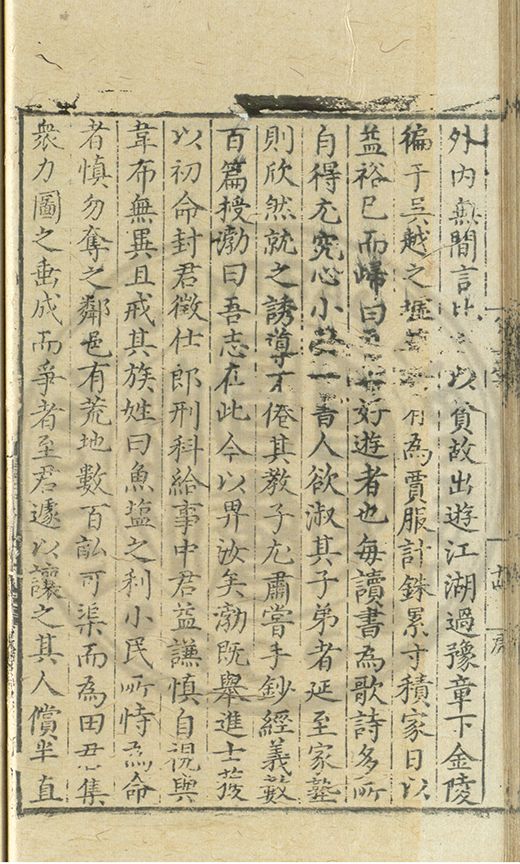 外内無間言以貧故出遊江湖過豫章下金陵
徧于吳越之墟為賈服計銖累寸積家日以
益裕已而歸曰吾好遊者也每讀書為歌詩多所
自得尤究心小學一書人欲淑其子弟者延至家塾
則欣然就之誘導不倦其教子尤肅嘗手鈔經義數
百篇授渤曰吾志在此今以畀汝矣渤既舉進士荐
以初命封君徵仕郎刑科給事中君益謙慎自視與
韋布無異且戒其族姓曰魚塩之利小民所恃為命
者慎勿奪之鄰邑有荒地數百畝可渠而為田君集
衆力圖之垂成而爭者至君遽以讓之其人償半直